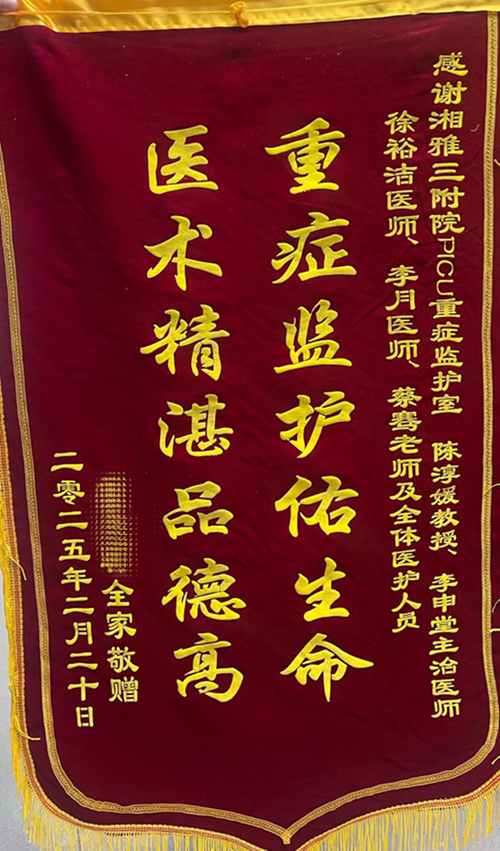 感谢湘雅三附院PICU重症监护室 陈淳媛教授、李申堂主治医师
徐裕洁医师、李月医师、蔡骞老师及全体医护人员
重症监护佑生命
医术精湛品德高
全家敬赠
二零二五年二月二十日